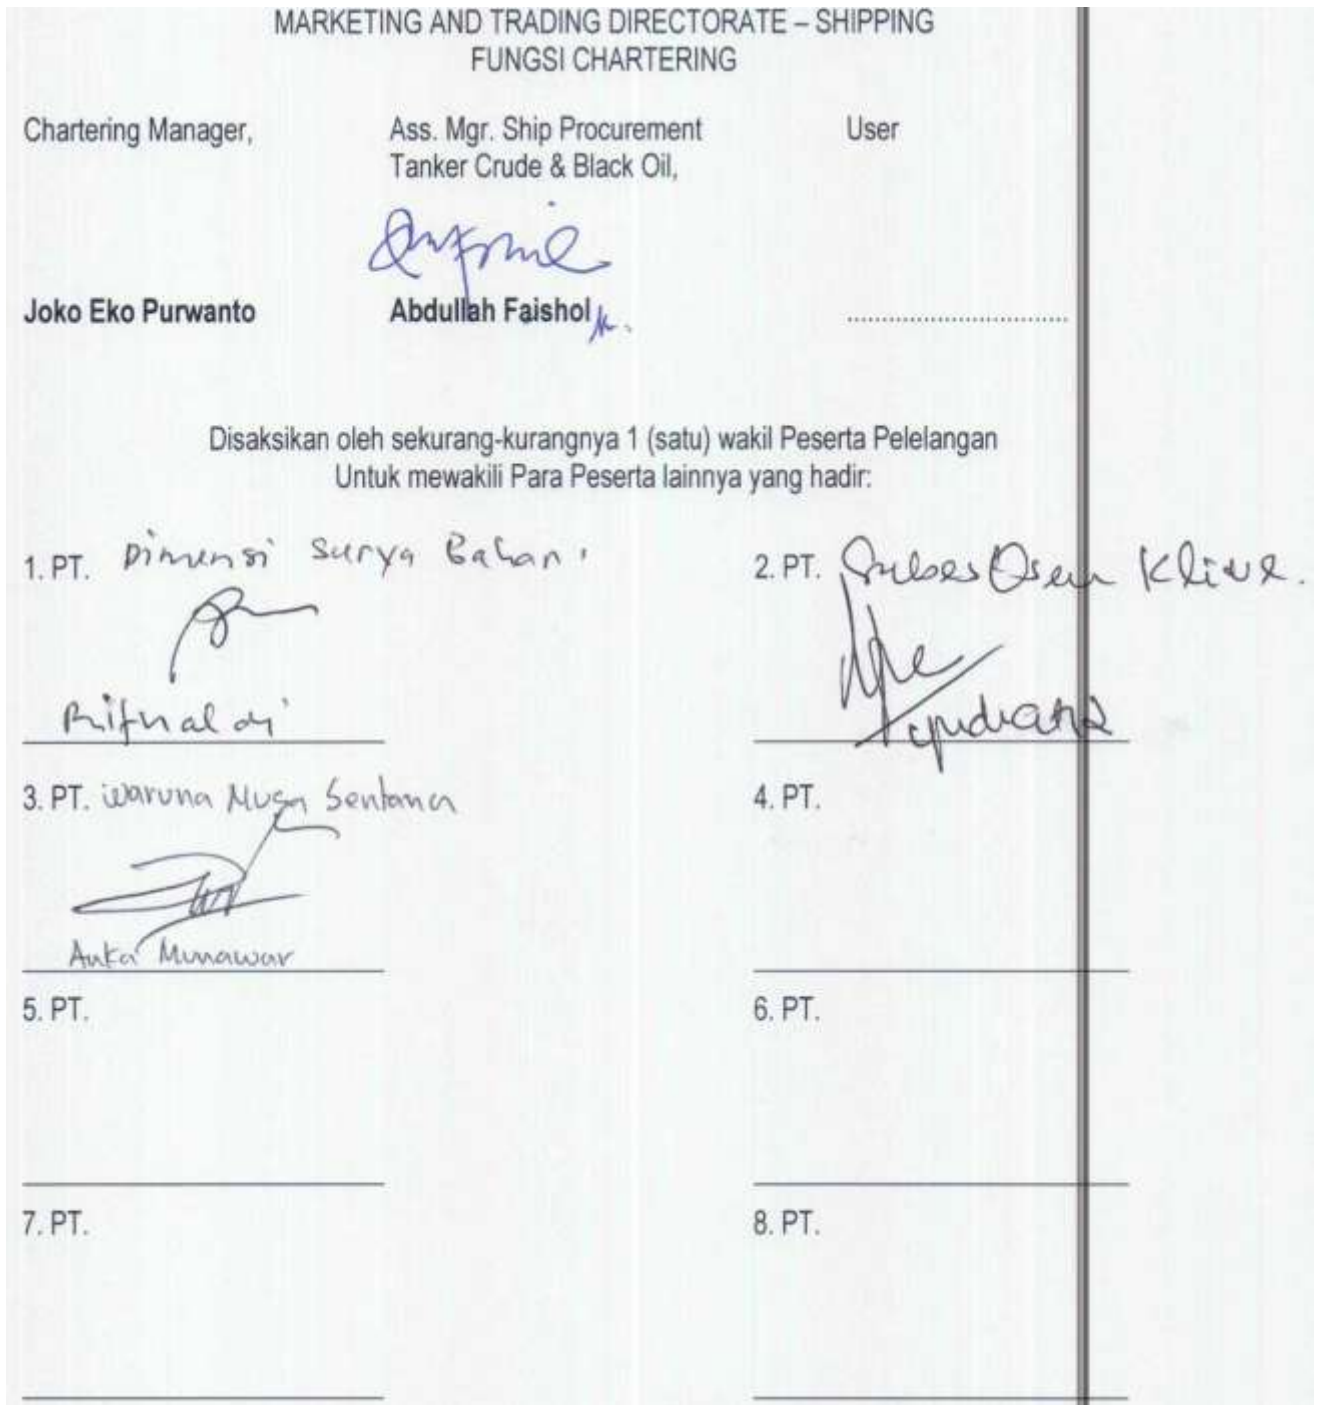 MARKETING AND TRADING DIRECTORATE – SHIPPING
FUNGSI CHARTERING
Chartering Manager,
Ass. Mgr. Ship Procurement
Tanker Crude & Black Oil,
User
Joko Eko Purwanto
Abdullah Faishol
..............................
Disaksikan oleh sekurang-kurangnya 1 (satu) wakil Peserta Pelelangan
Untuk mewakili Para Peserta lainnya yang hadir:
1. PT. Dimensi Surya Bahari
Rifnaldi
2. PT. Sukses Osean
3. PT. Waruna Nusa Sentana
Munawar
4. PT.
5. PT.
6. PT.
7. PT.
8. PT.